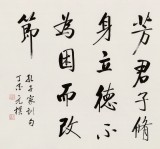 芳君子脩
身立德不
為困而改
節
孔子家訓句